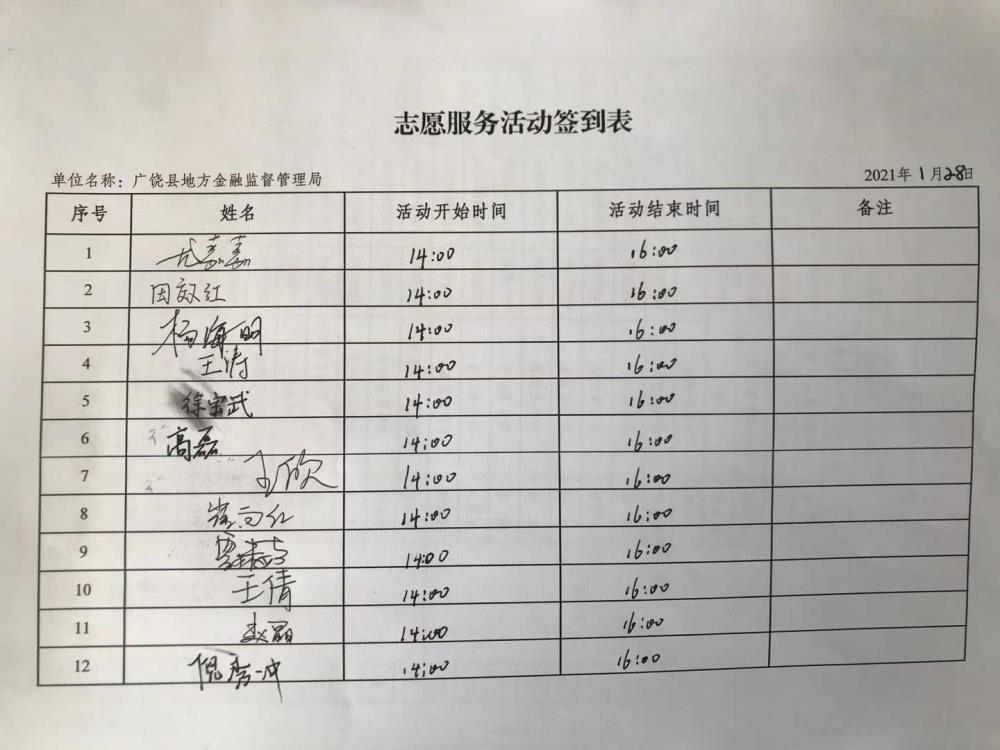 志愿服务活动签到表
单位名称：广饶县地方金融监督管理局 2021年1月28日
序号 姓名 活动开始时间 活动结束时间 备注
1 尤嘉嘉 14:00 16:00
2 田效红 14:00 16:00
3 杨海明 14:00 16:00
4 王涛 14:00 16:00
5 徐宝武 14:00 16:00
6 高磊 14:00 16:00
7 王欣 14:00 16:00
8 崔向红 14:00 16:00
9 14:00 16:00
10 王倩 14:00 16:00
11 赵丽 14:00 16:00
12 倪秀成 14:00 16:00